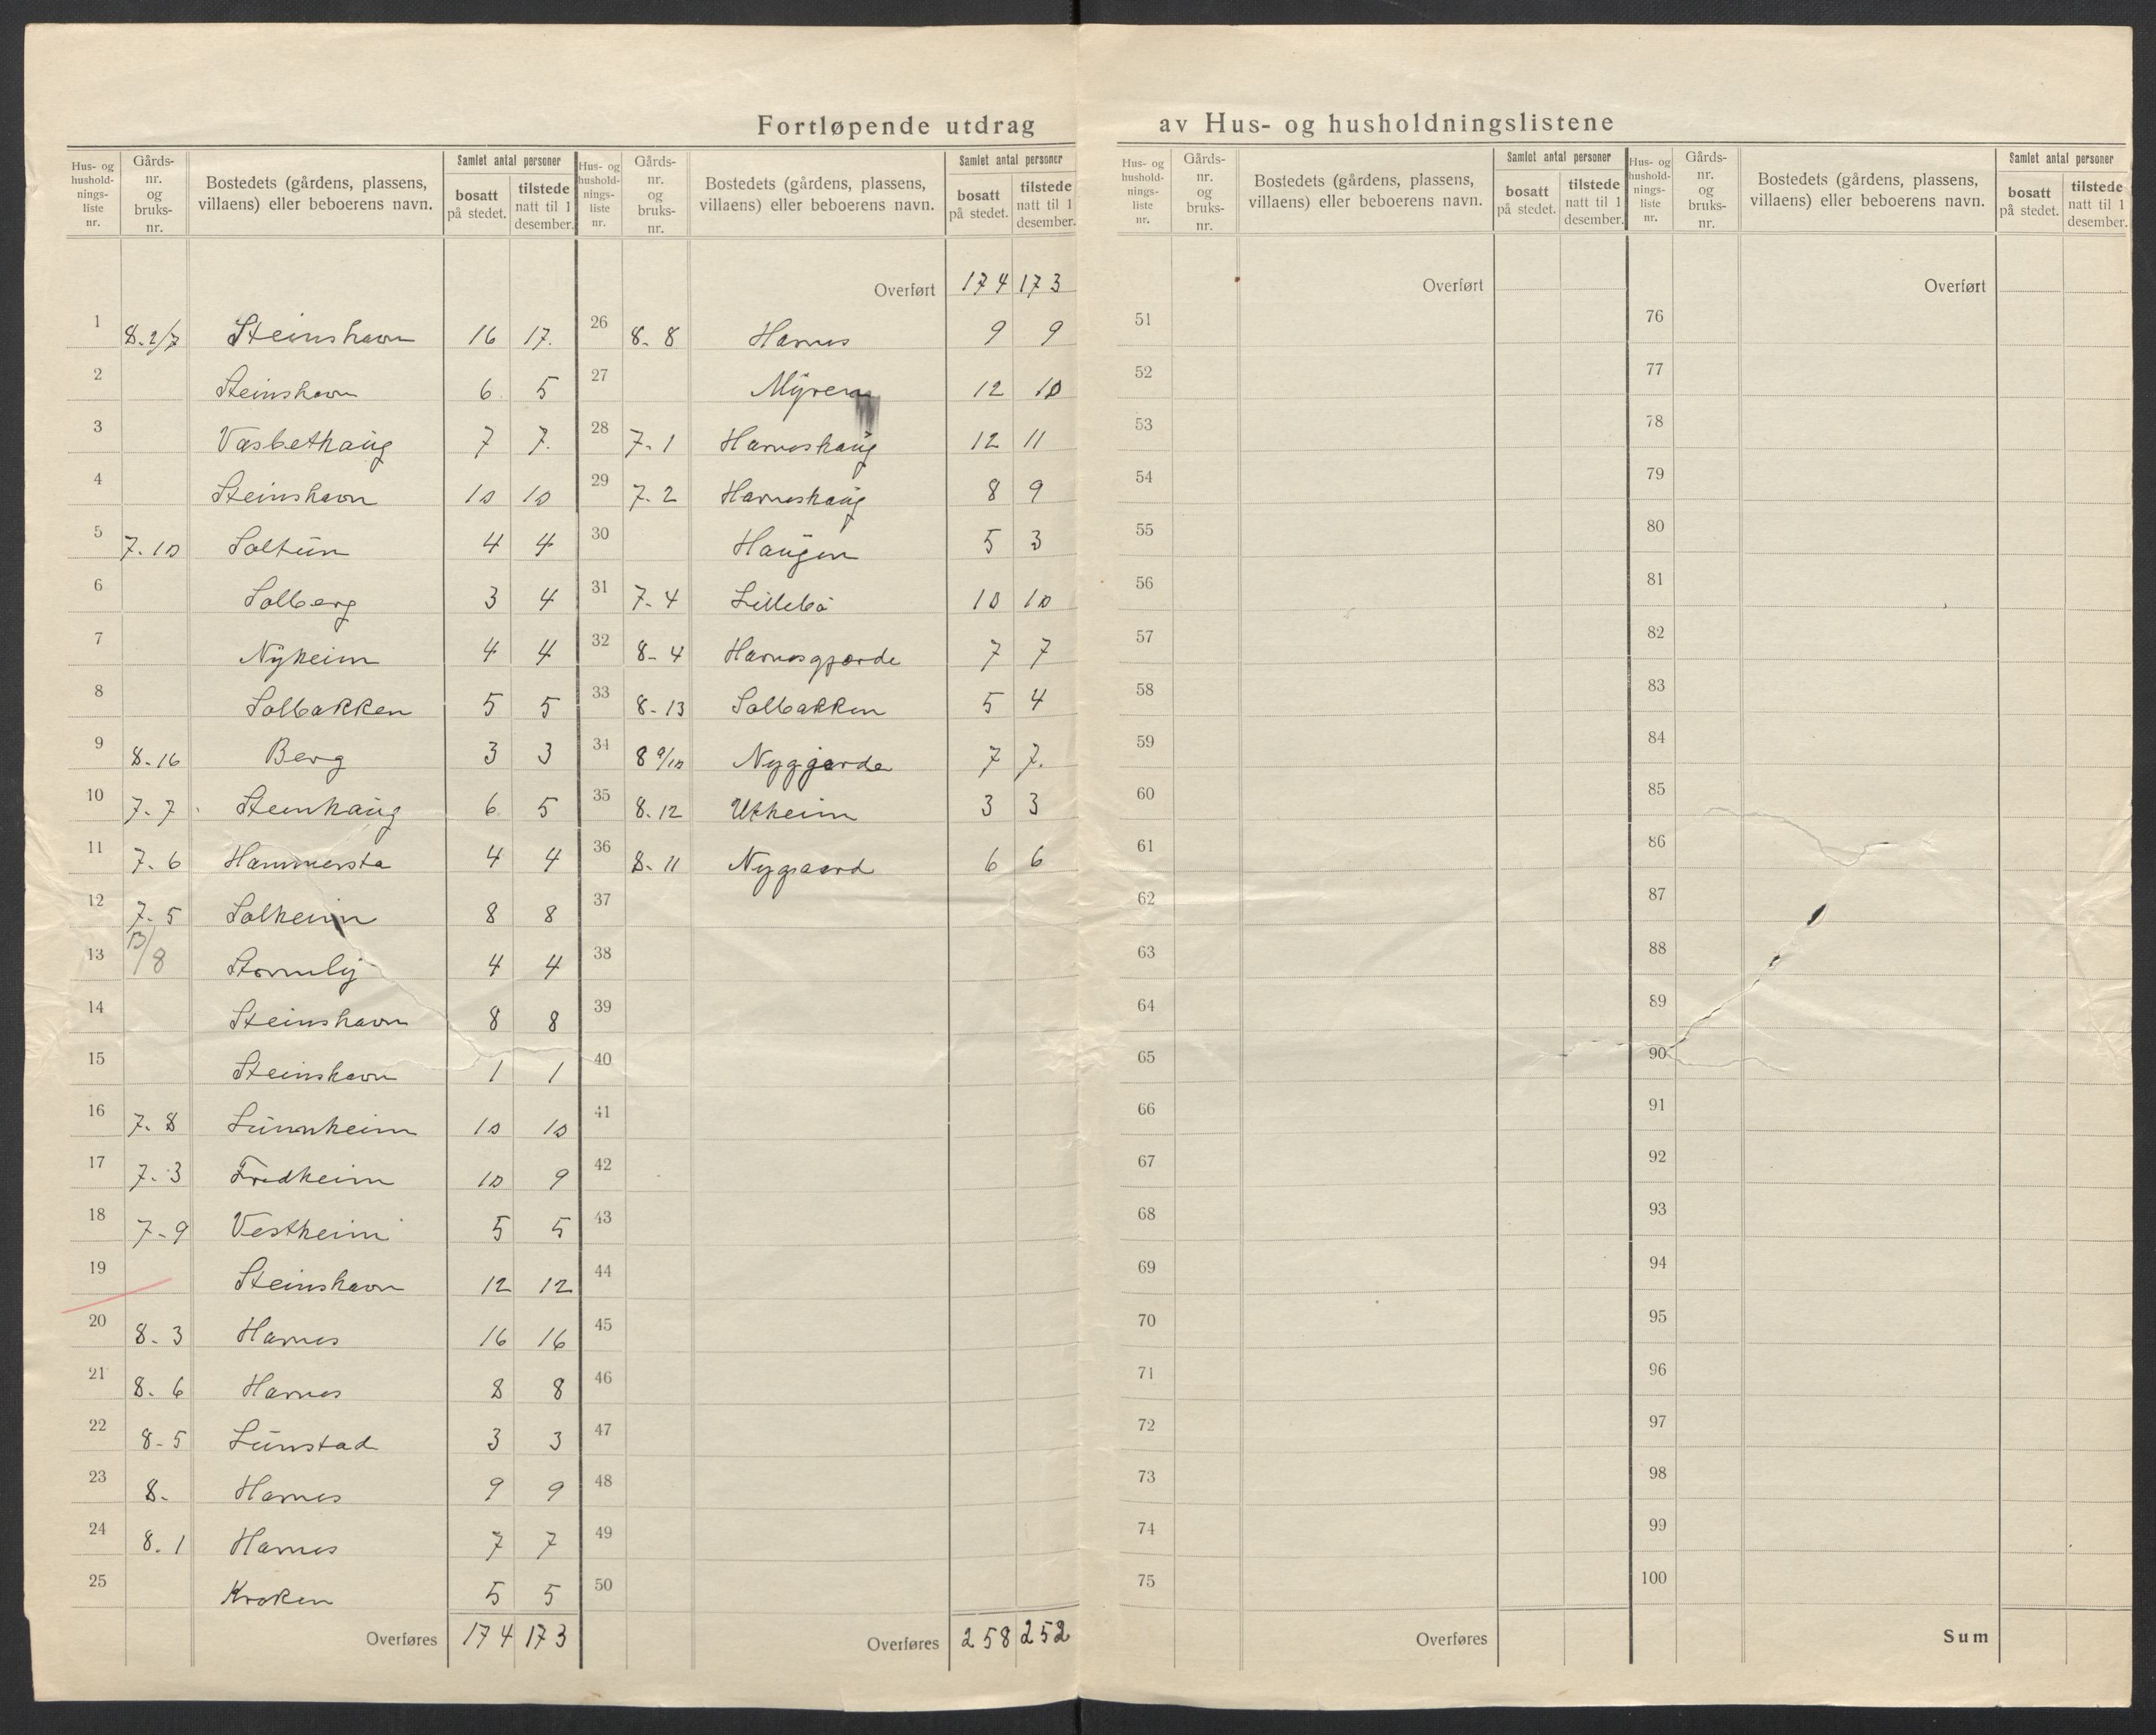 Fortløpende utdrag av Hus- og husholdningslistene
Hus- og husholdnings-liste nr. Gårds-nr. og bruks-nr. Bostedets (gårdens, plassens, villaens) eller beboerens navn. Samlet antal personer bosatt på stedet. tilstede natt til 1 desember.
1 8.2/7 Steinshavn 16 17.
2 Steinshavn 6 5
3 Vasbethaug 7 7.
4 Steinshavn 10 10
5 7.10 Soltun 4 4
6 Solberg 3 4
7 Nyheim 4 4
8 Solbakken 5 5
9 8.16 Berg 3 3
10 7.7 Steinhaug 6 5
11 7.6 Hammersta 4 4
12 7.5 Solheim 8 8
13 13/8 Stornely 4 4
14 Steinshavn 8 8
15 Steinshavn 1 1
16 7.8 Sunnheim 10 10
17 7.3 Fredheim 10 9
18 7-9 Vestheim 5 5
19 Steinshavn 12 12
20 8.3 Harnes 16 16
21 8.6 Harnes 8 8
22 8-5 Sunstad 3 3
23 8. Harnes 9 9
24 8.1 Harnes 7 7
25 Kroken 5 5
Overføres 174 173
Hus- og husholdnings-liste nr. Gårds-nr. og bruks-nr. Bostedets (gårdens, plassens, villaens) eller beboerens navn. Samlet antal personer bosatt på stedet. tilstede natt til 1 desember.
Overført 174 173
26 8.8 Harnes 9 9
27 Myren 12 10
28 7.1 Harneshaug 12 11
29 7.2 Harneshaug 8 9
30 Haugen 5 3
31 7.4 Lillebö 10 10
32 8-4 Harnesgjærde 7 7
33 8-13 Solbakken 5 4
34 8 9/10 Nyggjærde 7 7.
35 8.12 Utheim 3 3
36 8-11 Nygaard 6 6
37
38
39
40
41
42
43
44
45
46
47
48
49
50
Overføres 258 252
Hus- og husholdnings-liste nr. Gårds-nr. og bruks-nr. Bostedets (gårdens, plassens, villaens) eller beboerens navn. Samlet antal personer bosatt på stedet. tilstede natt til 1 desember.
Overført
51
52
53
54
55
56
57
58
59
60
61
62
63
64
65
66
67
68
69
70
71
72
73
74
75
Overføres
Hus- og husholdnings-liste nr. Gårds-nr. og bruks-nr. Bostedets (gårdens, plassens, villaens) eller beboerens navn. Samlet antal personer bosatt på stedet. tilstede natt til 1 desember.
Overført
76
77
78
79
80
81
82
83
84
85
86
87
88
89
90
91
92
93
94
95
96
97
98
99
100
Sum